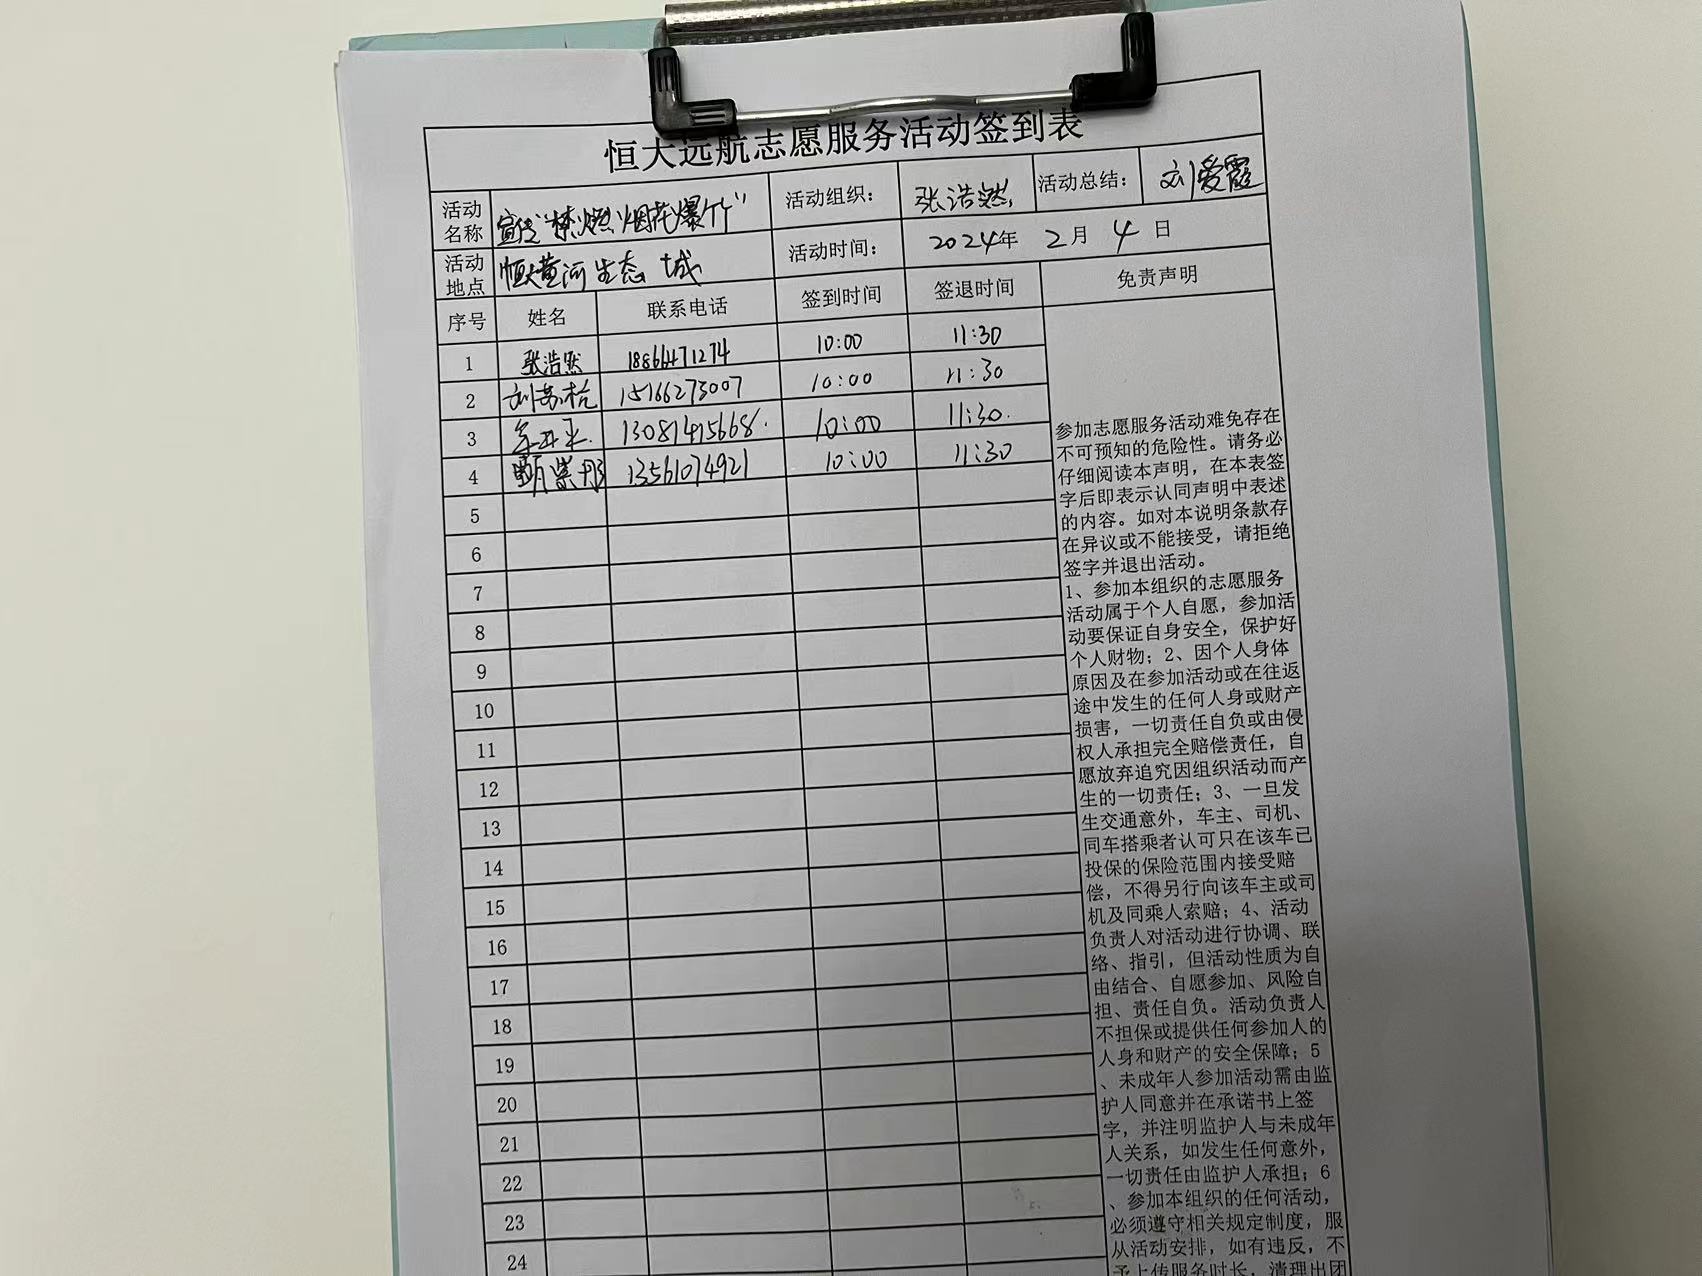 恒大远航志愿服务活动签到表
活动名称 宣传"禁燃"烟花爆竹" 活动组织: 张浩然 活动总结: 刘爱霞
活动地点 恒大黄河生态城 活动时间: 2024年 2月 4日
序号 姓名 联系电话 签到时间 签退时间 免责声明
1 张浩然 10:00 11:30
2 刘苏杭 15166273007 10:00 11:30
3 13081415668. 10:00 11:30.
4 13561074921 10:00 11:30
5
6
7
8
9
10
11
12
13
14
15
16
17
18
19
20
21
22
23
24
参加志愿服务活动难免存在
不可预知的危险性。请务必
仔细阅读本声明，在本表签
字后即表示认同声明中表述
的内容。如对本说明条款存
在异议或不能接受，请拒绝
签字并退出活动。
1、参加本组织的志愿服务
活动属于个人自愿，参加活
动要保证自身安全，保护好
个人财物；2、因个人身体
原因及在参加活动或在往返
途中发生的任何人身或财产
损害，一切责任自负或由侵
权人承担完全赔偿责任，自
愿放弃追究因组织活动而产
生的一切责任；3、一旦发
生交通意外，车主、司机、
同车搭乘者认可只在该车已
投保的保险范围内接受赔
偿，不得另行向该车主或司
机及同乘人索赔；4、活动
负责人对活动进行协调、联
络、指引，但活动性质为自
由结合、自愿参加、风险自
担、责任自负。活动负责人
不担保或提供任何参加人的
人身和财产的安全保障；5
、未成年人参加活动需由监
护人同意并在承诺书上签
字，并注明监护人与未成年
人关系，如发生任何意外，
一切责任由监护人承担；6
、参加本组织的任何活动，
必须遵守相关规定制度，服
从活动安排，如有违反，不
予上传服务时长，清理出团